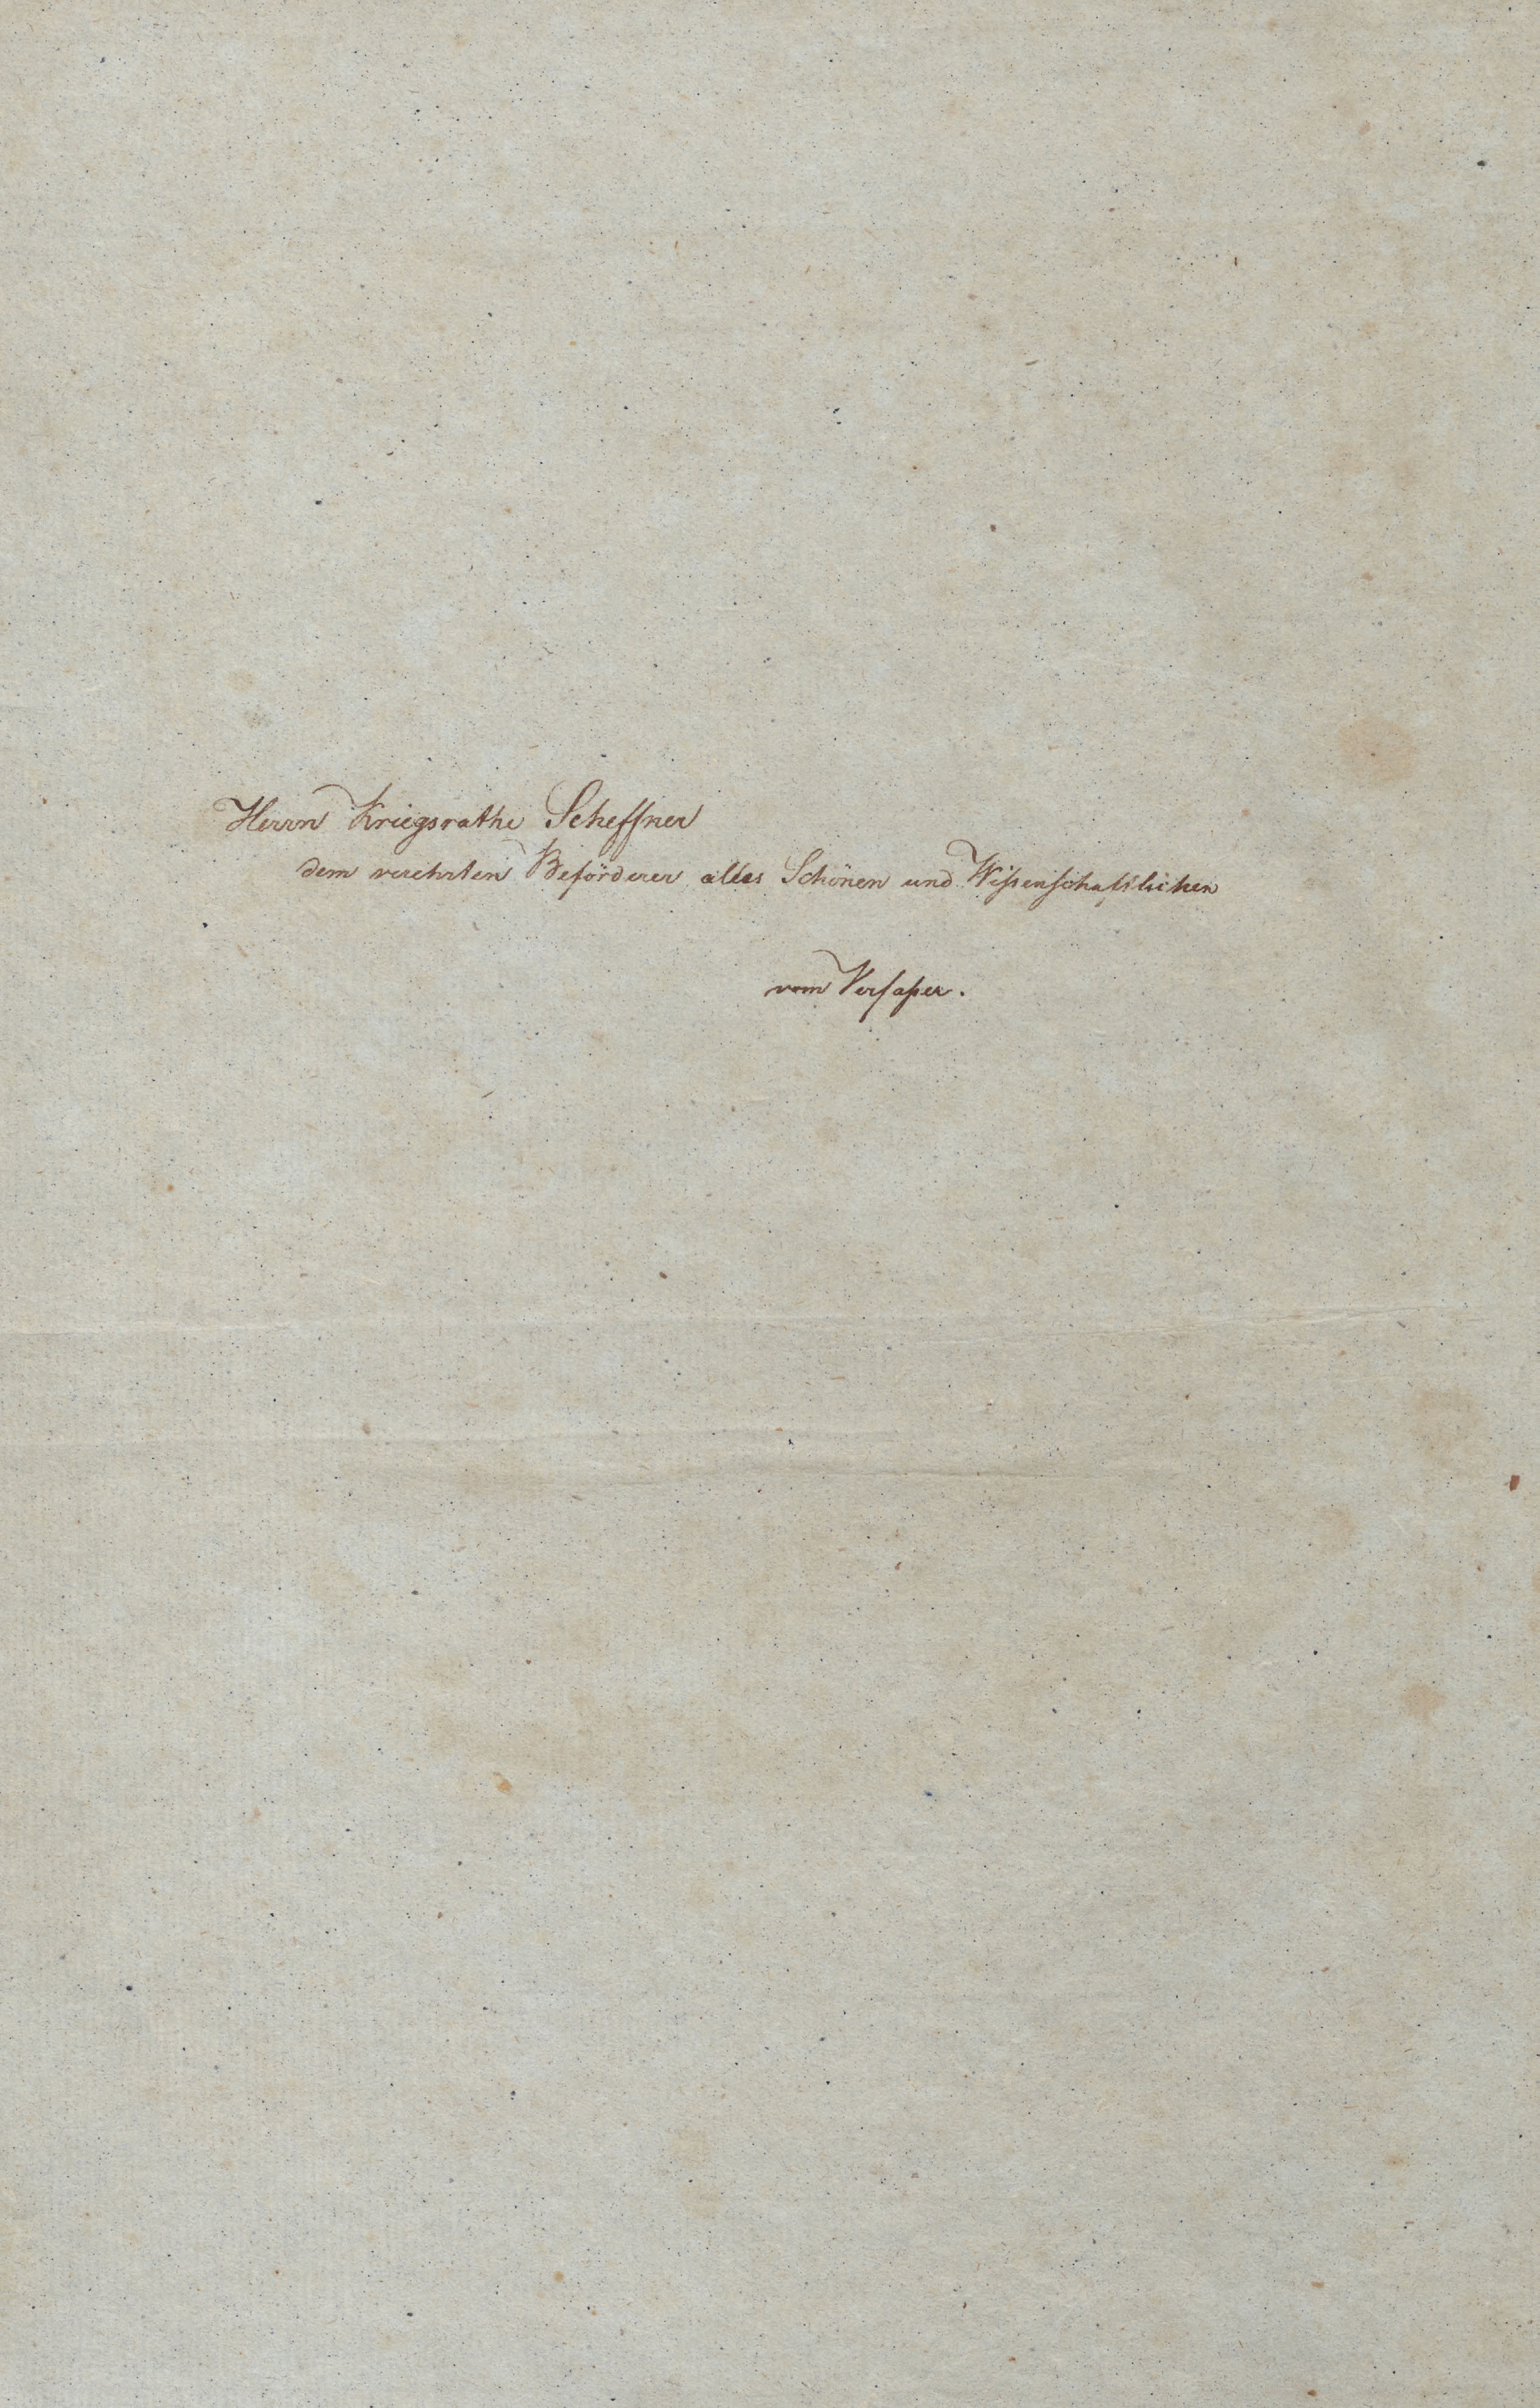 Herrn Kriegsrathe Scheffner
dem verehrten Beförderer alles Schönen und Wißenschaftlichen
vom Verfaßer.